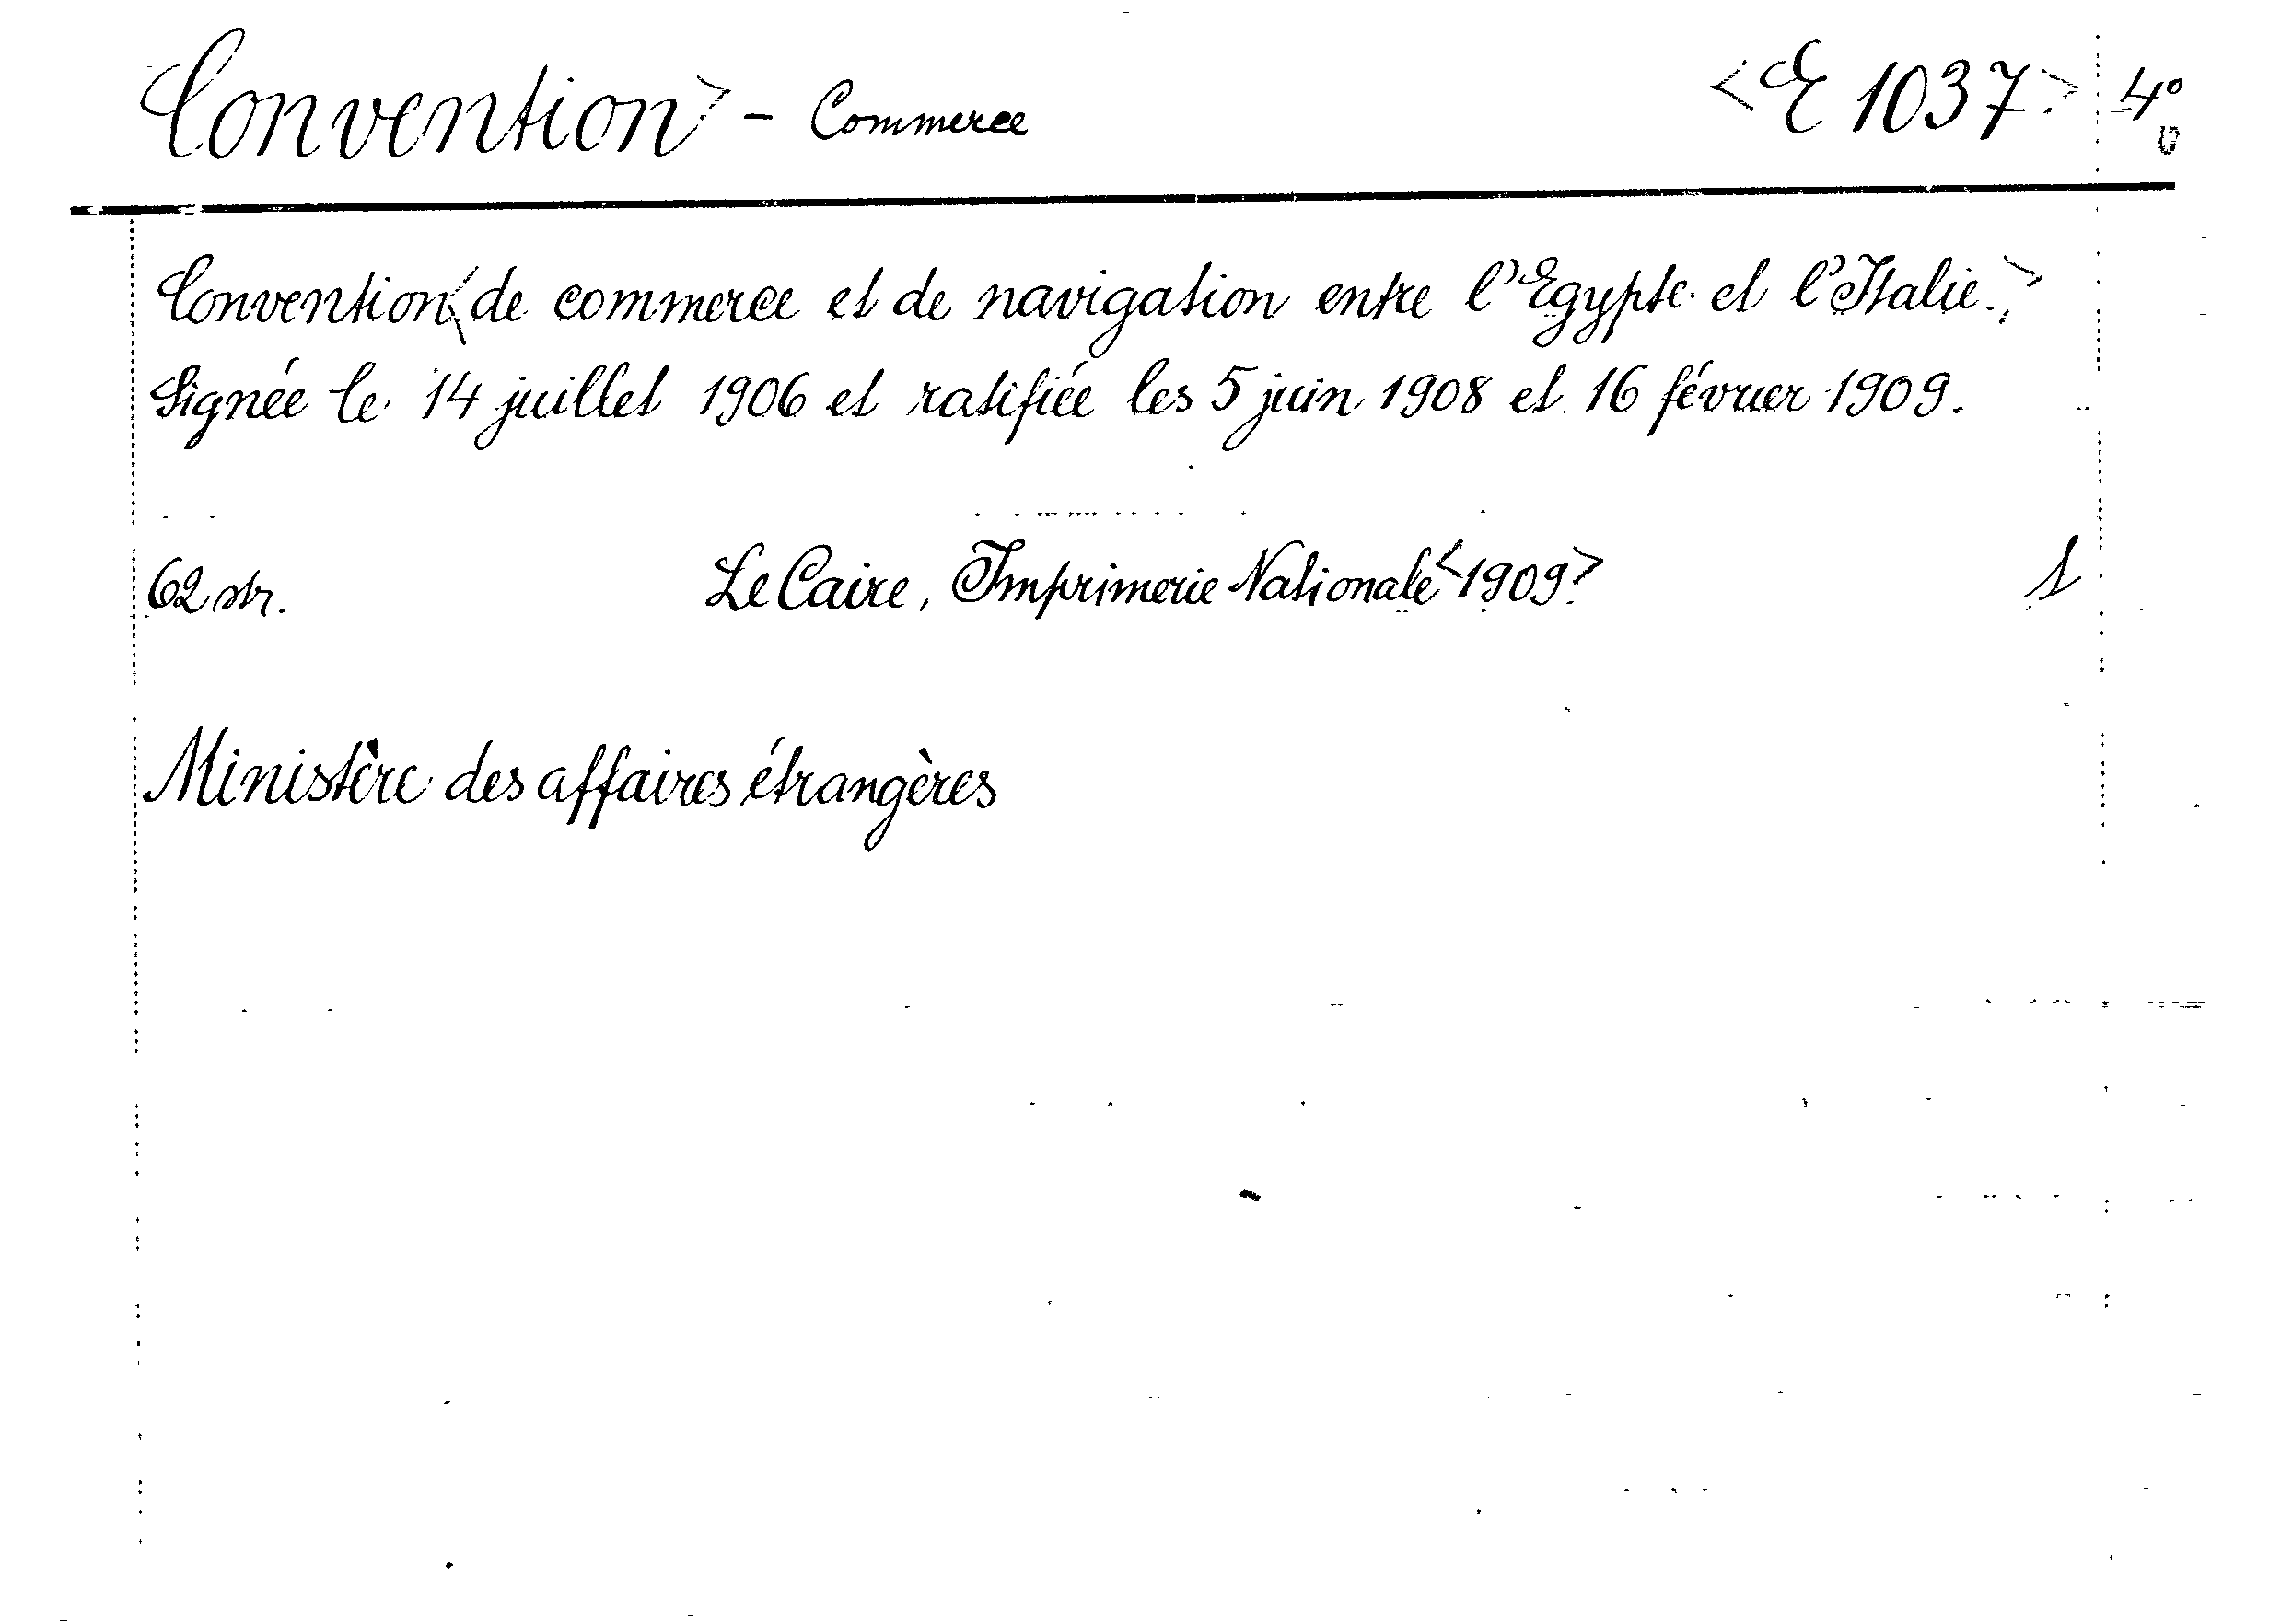 Convention> - Commerce <E 1037> 4°
Convention<de commerce et de navigation entre l'Egypte et l'Italie.>
Signée le 14 juillet 1906 et ratifiée les 5 juin 1908 et 16 février 1909.
62 str. Le Caire, Imprimerie Nationale <1909> 1
Ministère des affaires étrangères